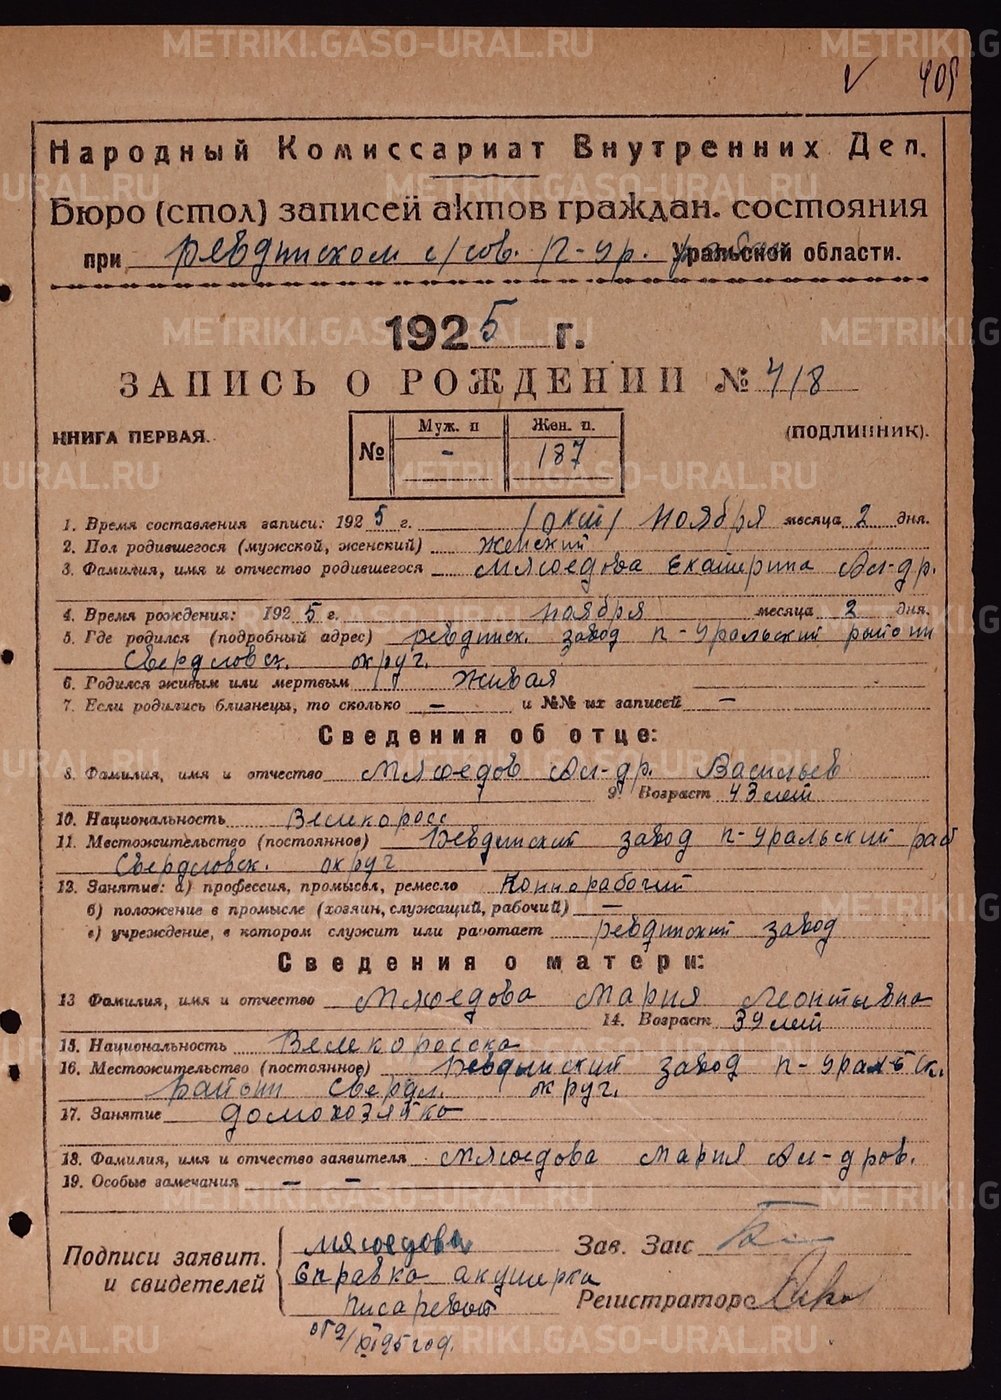 METRIKI.GASO-URAL.RU
405
Народный Комиссариат Внутренних Дел.
Бюро (стол) записей актов граждан. состояния
при Ревдинском с/сов. П-Ур. Уральской области.
1925 г.
ЗАПИСЬ О РОЖДЕНИИ № 418
КНИГА ПЕРВАЯ.
(ПОДЛИННИК).
№ Муж. п Жен. п.
- 187
1. Время составления записи: 1925 г. Ноября месяца 2 дня.
2. Пол родившегося (мужской, женский) Женский
3. Фамилия, имя и отчество родившегося Мясоедова Екатерина Ал-др.
4. Время рождения: 1925 г. Ноября месяца 2 дня.
5. Где родился (подробный адрес) Ревдинск. завод П-Уральский район
Свердловск. округ.
6. Родился живым или мертвым Живая
7. Если родились близнецы, то сколько — и №№ их записей —
Сведения об отце:
8. Фамилия, имя и отчество Мясоедов Ал-др. Васильев
9. Возраст 43 лет
10. Национальность Великоросс
11. Местожительство (постоянное) Ревдинский завод П-Уральский рай
Свердловск. округ
12. Занятие: а) профессия, промысел, ремесло Коннорабочий
б) положение в промысле (хозяин, служащий, рабочий) —
в) учреждение, в котором служит или работает Ревдинский завод
Сведения о матери:
13 Фамилия, имя и отчество Мясоедова Мария Леонтьевна
14. Возраст 39 лет
15. Национальность Великоросска
16. Местожительство (постоянное) Ревдинский завод П-Уральск.
район Свердл. округ.
17. Занятие домохозяйка
18. Фамилия, имя и отчество заявителя Мясоедова Мария Ал-дров.
19. Особые замечания — —
Подписи заявит.
и свидетелей
Мясоедова
Справка акушерка
Писаревой
от 2/XI 25 год.
Зав. Загс
Регистратор